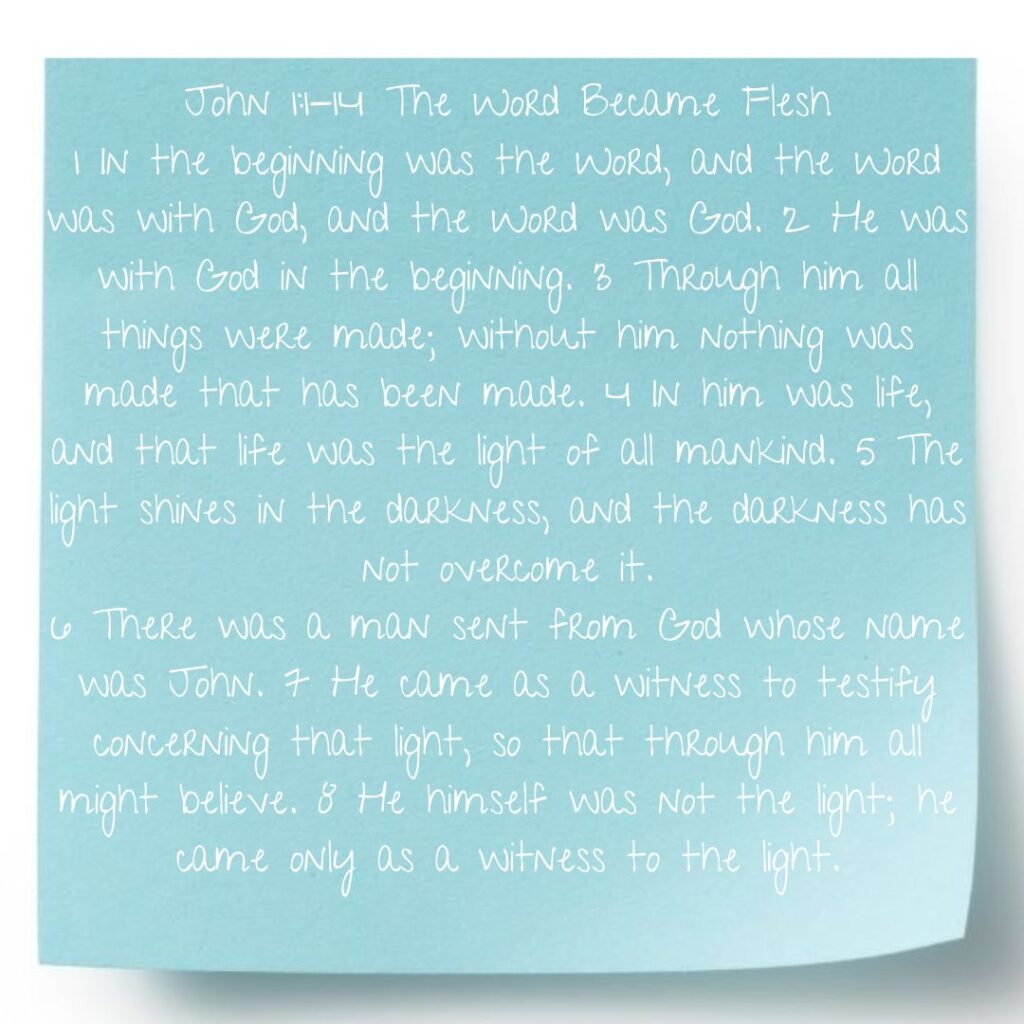 John 1:1-14 The Word Became Flesh
1 In the beginning was the Word, and the Word
was with God, and the Word was God. 2 He was
with God in the beginning. 3 Through him all
things were made; without him nothing was
made that has been made. 4 In him was life,
and that life was the light of all mankind. 5 The
light shines in the darkness, and the darkness has
not overcome it.
6 There was a man sent from God whose name
was John. 7 He came as a witness to testify
concerning that light, so that through him all
might believe. 8 He himself was not the light; he
came only as a witness to the light.